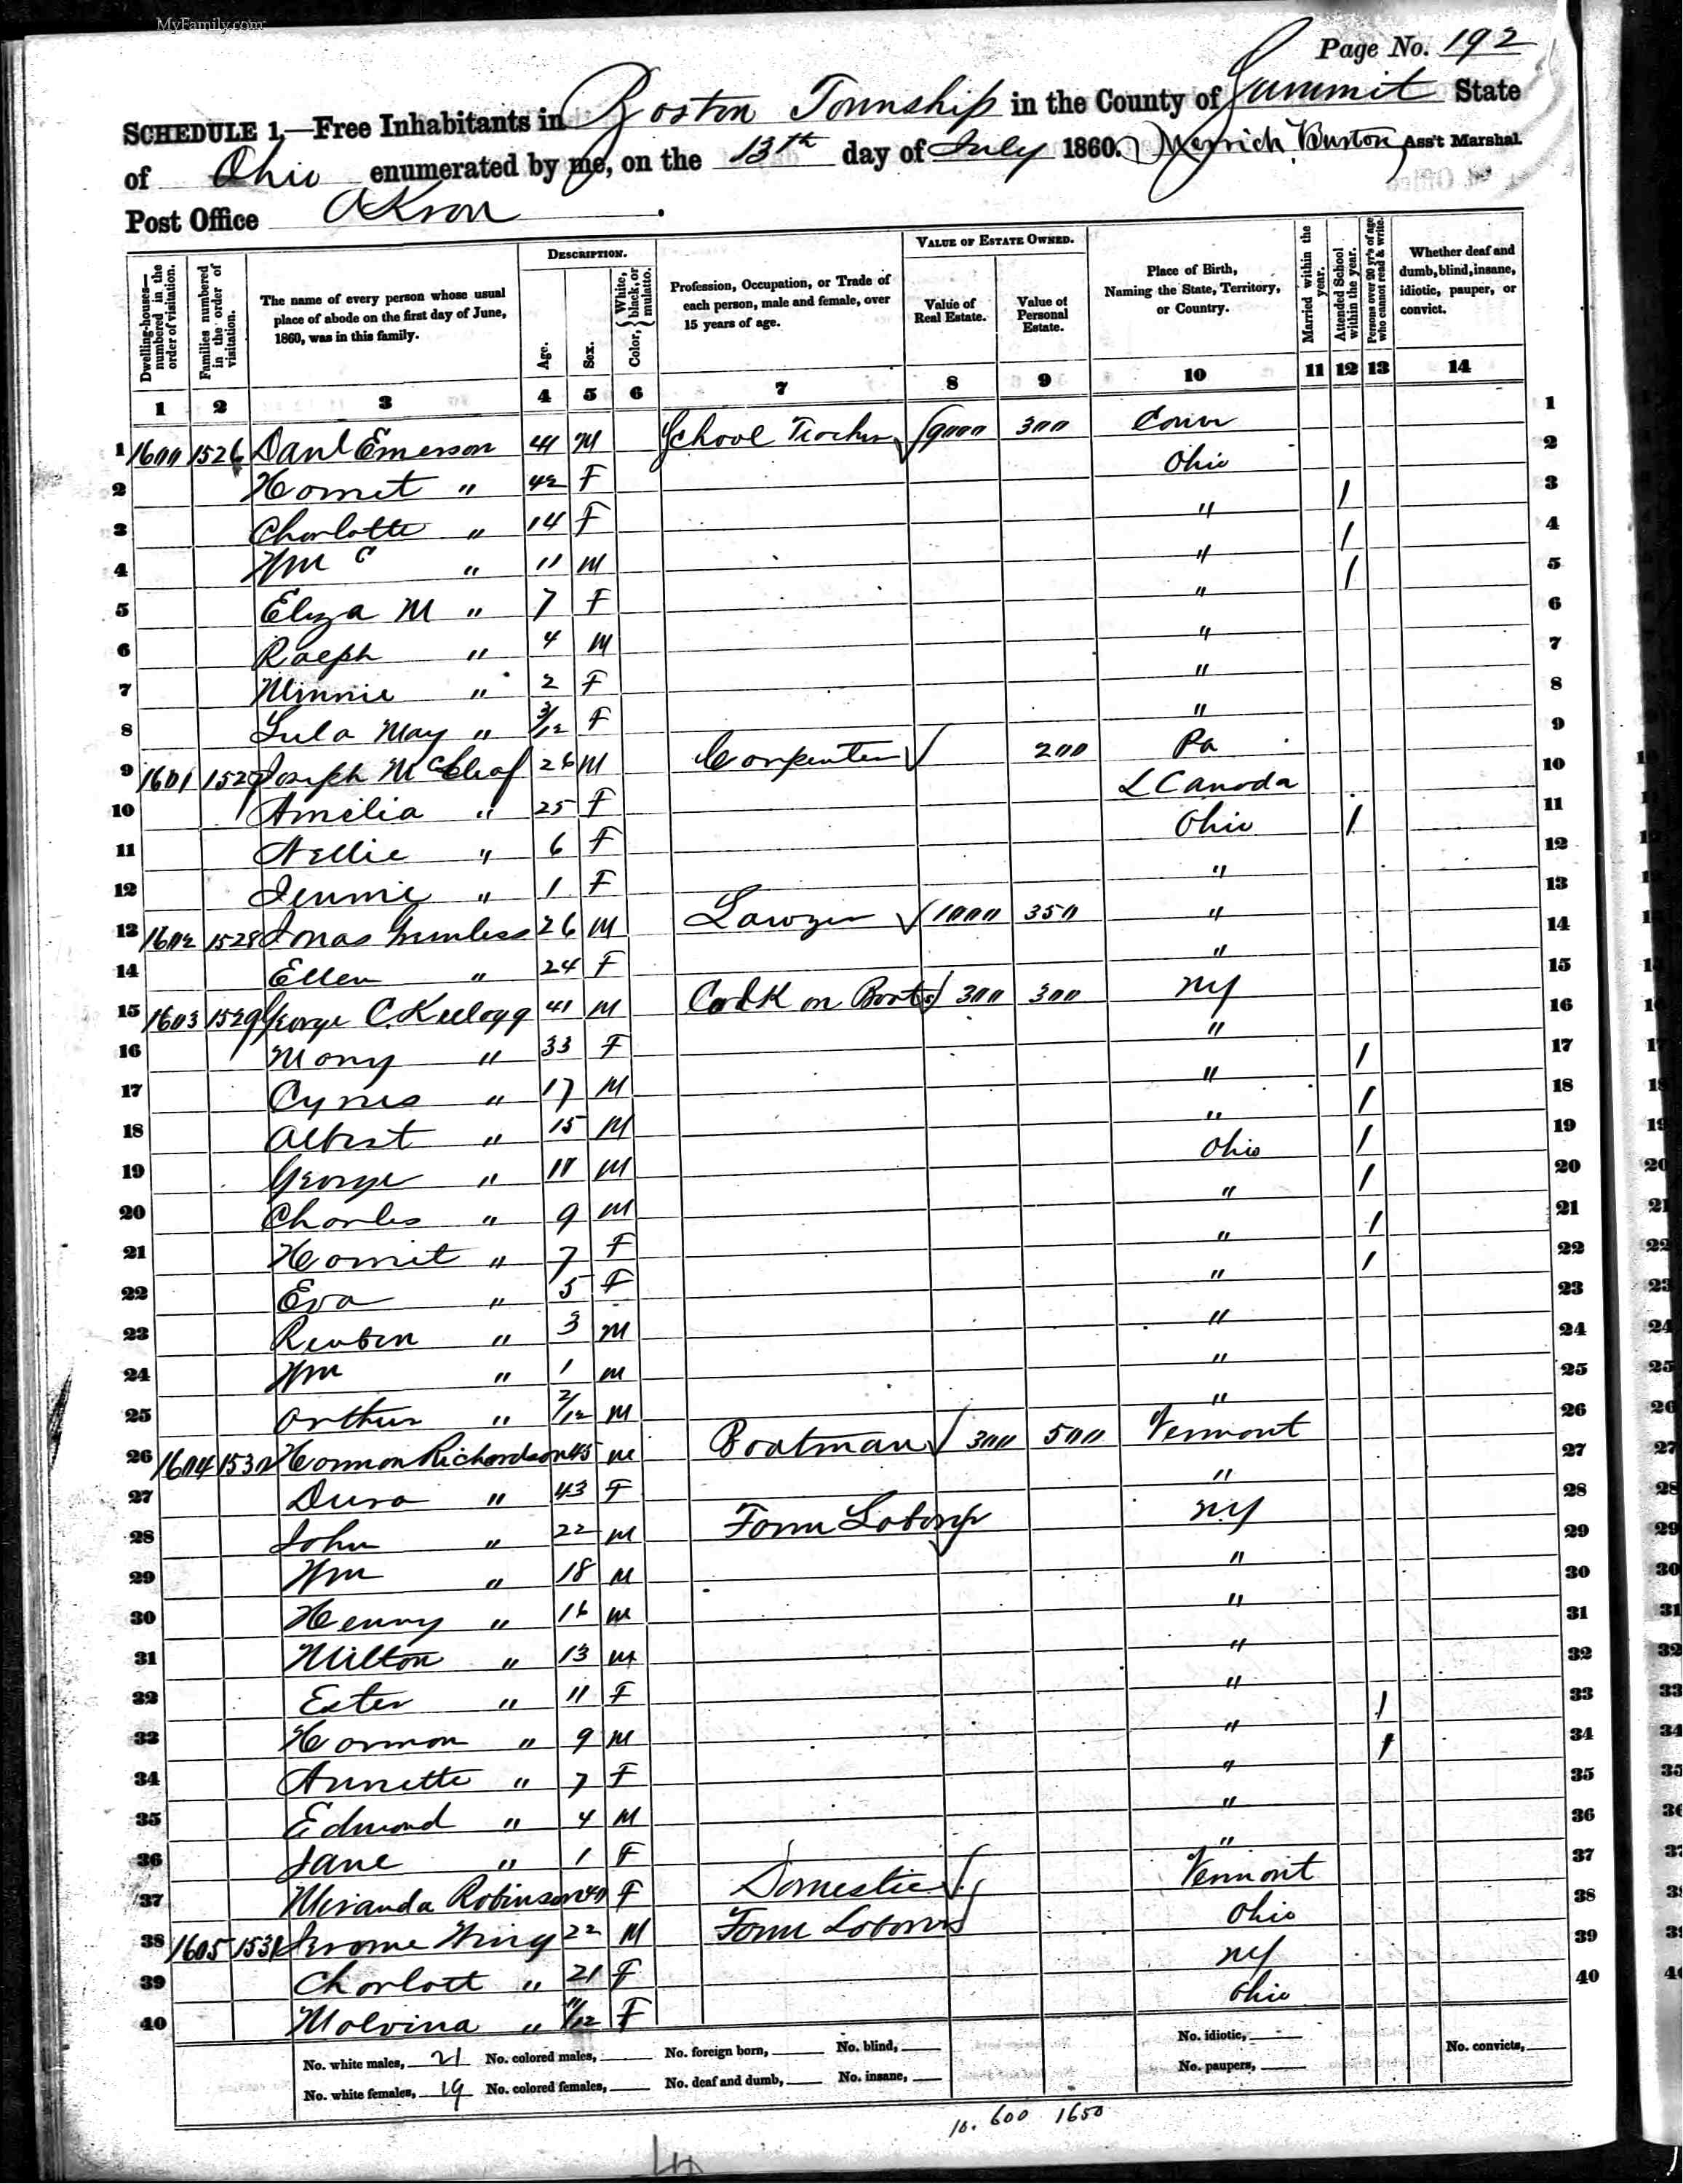 MyFamily.com
Page No. 192
SCHEDULE 1.—Free Inhabitants in Boston Township in the County of Summit State
of Ohio enumerated by me, on the 13th day of July 1860. Burton Ass't Marshal.
Post Office Akron
DESCRIPTION. VALUE OF ESTATE OWNED.
Dwelling-houses—numbered in the order of visitation. Families numbered in the order of visitation. The name of every person whose usual place of abode on the first day of June, 1860, was in this family. Age. Sex. Color, { White, black, or mulatto. Profession, Occupation, or Trade of each person, male and female, over 15 years of age. Value of Real Estate. Value of Personal Estate. Place of Birth, Naming the State, Territory, or Country. Married within the year. Attended School within the year. Persons over 20 y'rs of age who cannot read & write. Whether deaf and dumb, blind, insane, idiotic, pauper, or convict.
1 2 3 4 5 6 7 8 9 10 11 12 13 14
1 1600 1526 Danl Emerson 41 M School Teacher 9000 300 Conn 1
2 Harriet " 42 F Ohio 2
3 Charlotte " 14 F " / 3
4 Wm C " 11 M " / 4
5 Eliza M " 7 F " / 5
6 Ralph " 4 M " 6
7 Minnie " 2 F " 7
8 Lula May " 3/12 F " 8
9 1601 1527 Joseph McCleaf 26 M Carpenter 200 Pa 9
10 Amelia " 25 F L Canada 10
11 Nellie " 6 F Ohio / 11
12 Jennie " 1 F " 12
13 1602 1528 Jonas 26 M Lawyer 1000 350 " 13
14 Ellen " 24 F " 14
15 1603 1529 George C. Kellogg 41 M Cook on Boats 300 300 NY 15
16 Mary " 33 F " 16
17 Cyrus " 17 M " / 17
18 Albert " 15 M " / 18
19 George " 11 M Ohio / 19
20 Charles " 9 M " / 20
21 Harriet " 7 F " / 21
22 Eva " 5 F " / 22
23 Reuben " 3 M " 23
24 Wm " 1 M " 24
25 Arthur " 2/12 M " 25
26 1604 1530 Harmon Richardson 45 M Boatman 300 500 Vermont 26
27 " 43 F " 27
28 John " 22 M Farm Laborer N.Y 28
29 Wm " 18 M " 29
30 Henry " 16 M " 30
31 Milton " 13 M " 31
32 Ester " 11 F " 32
33 Harmon " 9 M " / 33
34 Annette " 7 F " / 34
35 Edmond " 4 M " 35
36 Jane " 1 F " 36
37 Miranda Robinson 40 F Domestic Vermont 37
38 1605 1531 Jerome King 22 M Farm Laborer Ohio 38
39 Charlott " 21 F NY 39
40 Malvina " 11/12 F Ohio 40
No. white males, 21 No. colored males, No. foreign born, No. blind, No. idiotic, No. convicts,
No. white females, 19 No. colored females, No. deaf and dumb, No. insane, No. paupers,
10.600 1650